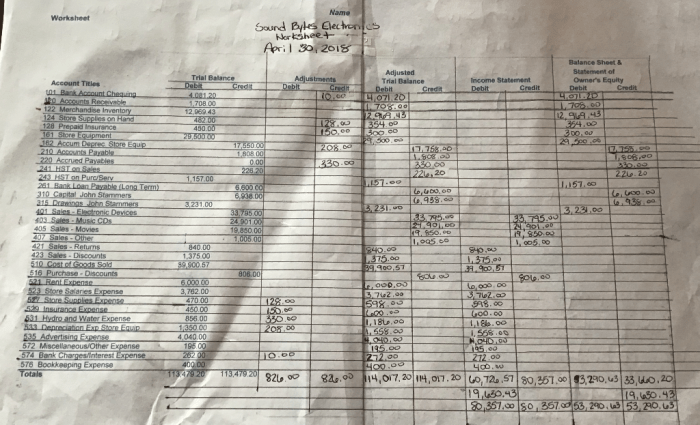 Worksheet
Name
Sound Bytes Electronics
Worksheet
April 30, 2018
Account Titles
Trial Balance Debit Credit
Adjustments Debit Credit
Adjusted Trial Balance Debit Credit
Income Statement Debit Credit
Balance Sheet & Statement of Owner's Equity Debit Credit
101 Bank Account Chequing 4 081.20 10.00 4,071.20 4,071.20
120 Accounts Receivable 1,708.00 1,708.00 1,708.00
122 Merchandise Inventory 12 969.43 12,969.43 12,969.43
124 Store Supplies on Hand 482.00 128.00 354.00 354.00
128 Prepaid Insurance 450.00 150.00 300.00 300.00
161 Store Equipment 29,500.00 29,500.00 29,500.00
162 Accum Deprec Store Equip 17,550.00 208.00 17,758.00 17,758.00
210 Accounts Payable 1,808.00 1,808.00 1,808.00
220 Accrued Payables 0.00 330.00 330.00 330.00
241 HST on Sales 226.20 226.20 226.20
243 HST on Purc/Serv 1,157.00 1,157.00 1,157.00
261 Bank Loan Payable (Long Term) 6,600.00 6,600.00 6,600.00
310 Capital John Stammers 6,938.00 6,938.00 6,938.00
315 Drawings John Stammers 3,231.00 3,231.00 3,231.00
401 Sales - Electronic Devices 33,795.00 33,795.00 33,795.00
403 Sales - Music CDs 24,901.00 24,901.00 24,901.00
405 Sales - Movies 19,850.00 19,850.00 19,850.00
407 Sales - Other 1,005.00 1,005.00 1,005.00
421 Sales - Returns 840.00 840.00 840.00
423 Sales - Discounts 1,375.00 1,375.00 1,375.00
510 Cost of Goods Sold 39,900.57 39,900.57 39,900.57
516 Purchase - Discounts 806.00 806.00 806.00
521 Rent Expense 6,000.00 6,000.00 6,000.00
523 Store Salaries Expense 3,762.00 3,762.00 3,762.00
527 Store Supplies Expense 470.00 128.00 598.00 598.00
529 Insurance Expense 450.00 150.00 600.00 600.00
531 Hydro and Water Expense 856.00 330.00 1,186.00 1,186.00
533 Depreciation Exp Store Equip 1,350.00 208.00 1,558.00 1,558.00
535 Advertising Expense 4,040.00 4,040.00 4,040.00
572 Miscellaneous/Other Expense 195.00 195.00 195.00
574 Bank Charges/Interest Expense 262.00 10.00 272.00 272.00
576 Bookkeeping Expense 400.00 400.00 400.00
Totals 113,479.20 113,479.20 826.00 826.00 114,017.20 114,017.20 60,726.57 80,357.00 53,290.63 33,660.20
19,630.43 19,630.43
80,357.00 80,357.00 53,290.63 53,290.63